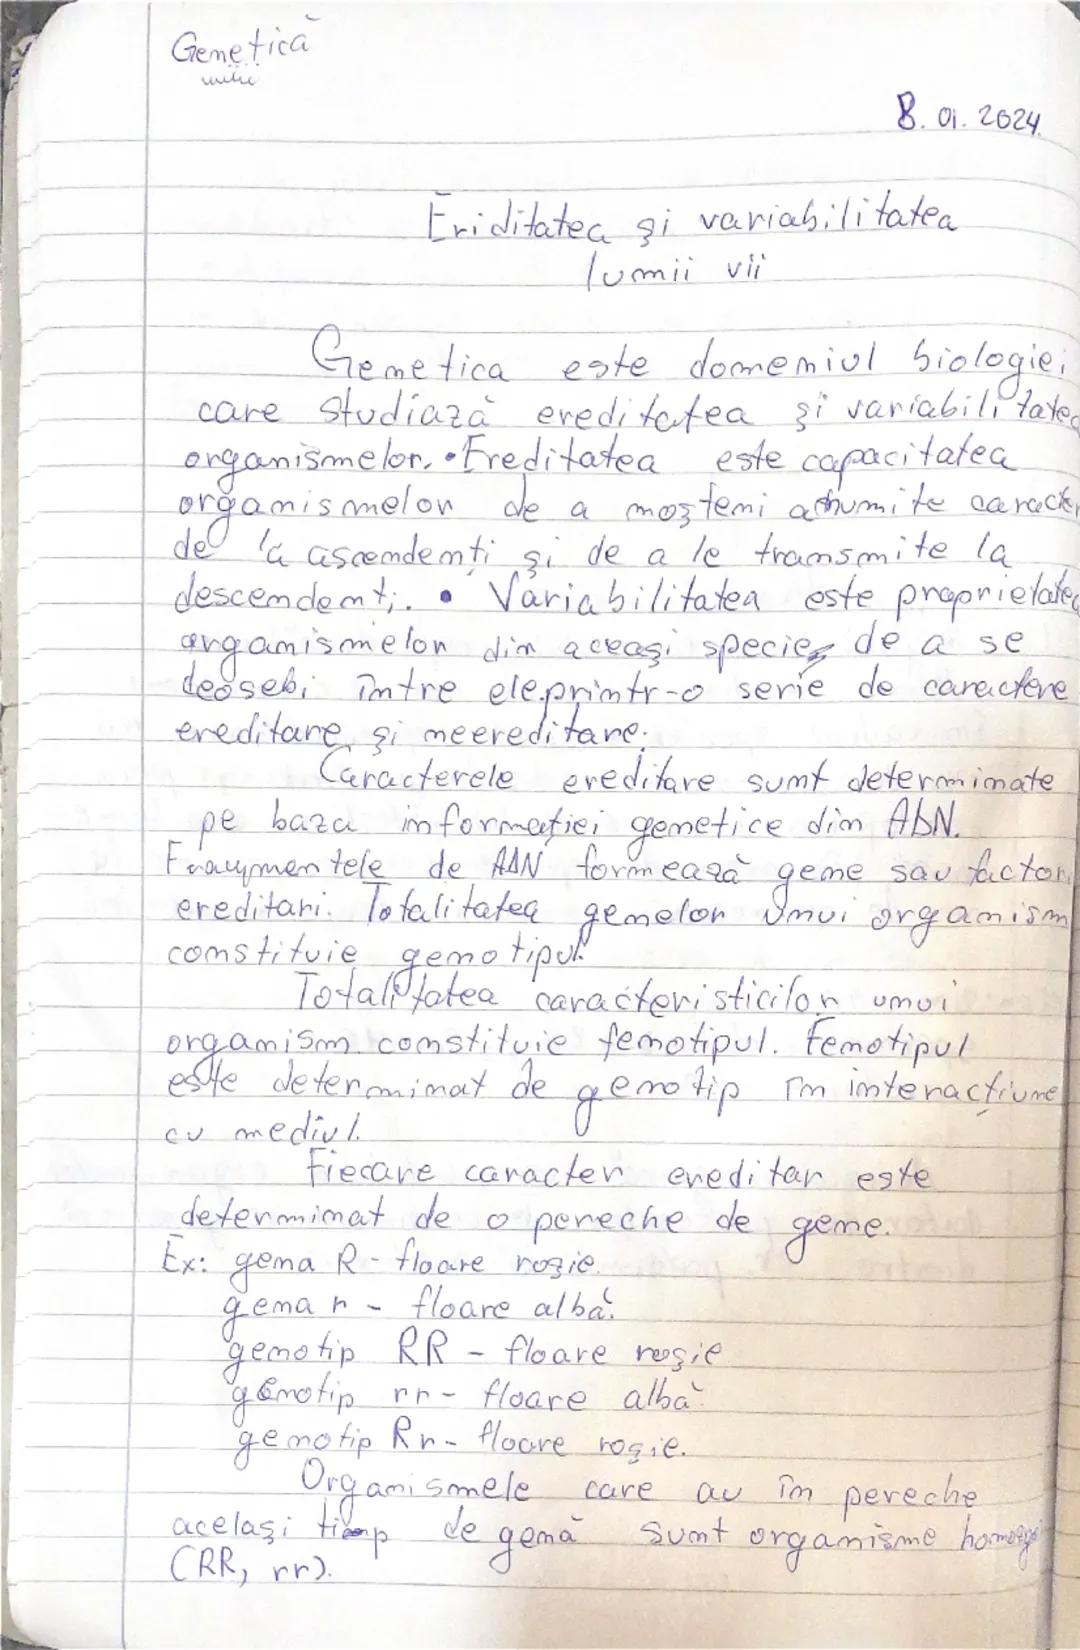 Genetică
8. 01. 2024.
Eriditatea și variabilitatea
lumii vii
Genetica este domeniul biologiei
care studiază ereditatea și variabilitatea
organismelor. • Ereditatea este capacitatea
organismelor de a moșteni anumite caracter
de la ascendenți și de a le transmite la
descendenți. • Variabilitatea este proprietatea
organismelor din aceași specie de a se
deosebi între ele printr-o serie de caractere
ereditare și neereditare.
Caracterele ereditare sunt determinate
pe baza informației genetice din ADN.
Fragmentele de ADN formează gene sau factori
ereditari. Totalitatea genelor unui organism
constituie genotipul.
Totalitatea caracteristicilor unui
organism constituie fenotipul. Fenotipul
este determinat de genotip în interacțiune
cu mediul.
Fiecare caracter ereditar este
determinat de o pereche de gene.
Ex: gena R - floare roșie.
gena r - floare albă.
genotip RR - floare roșie
genotip rr - floare albă.
genotip Rr - floare roșie.
Organismele care au în pereche
același tip de genă sunt organisme
(RR, rr).